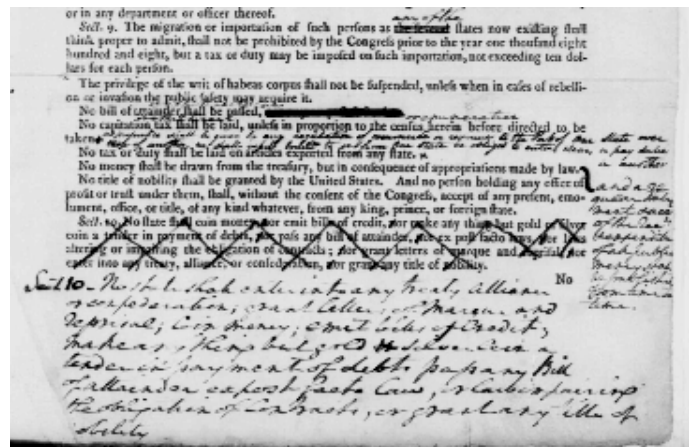 or in any department or officer thereof.
any of the
Sect. 9. The migration or importation of such persons as the several states now existing shall
think proper to admit, shall not be prohibited by the Congress prior to the year one thousand eight
hundred and eight, but a tax or duty may be imposed on such importation, not exceeding ten dol-
lars for each person.
The privilege of the writ of habeas corpus shall not be suspended, unless when in cases of rebelli-
on or invasion the public safety may require it.
No bill of attainder shall be passed,
No capitation tax shall be laid, unless in proportion to the census herein before directed to be
taken.
No tax or duty shall be laid on articles exported from any state.
No money shall be drawn from the treasury, but in consequence of appropriations made by law.
No title of nobility shall be granted by the United States. And no person holding any office of
profit or trust under them, shall, without the consent of the Congress, accept of any present, emo-
lument, office, or title, of any kind whatever, from any king, prince, or foreign state.
Sect. 10. No state shall coin money, nor emit bills of credit, nor make any thing but gold or silver
coin a tender in payment of debts, nor pass any bill of attainder, nor ex post facto laws, nor laws
altering or impairing the obligation of contracts; nor grant letters of marque and reprisal, nor
enter into any treaty, alliance, or confederation, nor grant any title of nobility.
No
Sect 10. No state shall enter into any treaty alliance
or confederation; grant letters of Marque and
reprisal; coin money; emit bills of Credit;
make any thing but gold or silver Coin a
tender in payment of debts pass any Bill
of attainder ex post facto Law, or Law impairing
the obligation of Contracts, or grant any title of
nobility